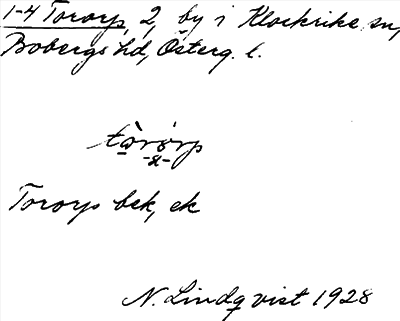 1-4 Tororp, 2, by i Klockrike sn,
Bobergs hd, Österg. l.
tòrórp
-x-
Tororps bek, ek
N. Lindqvist 1928